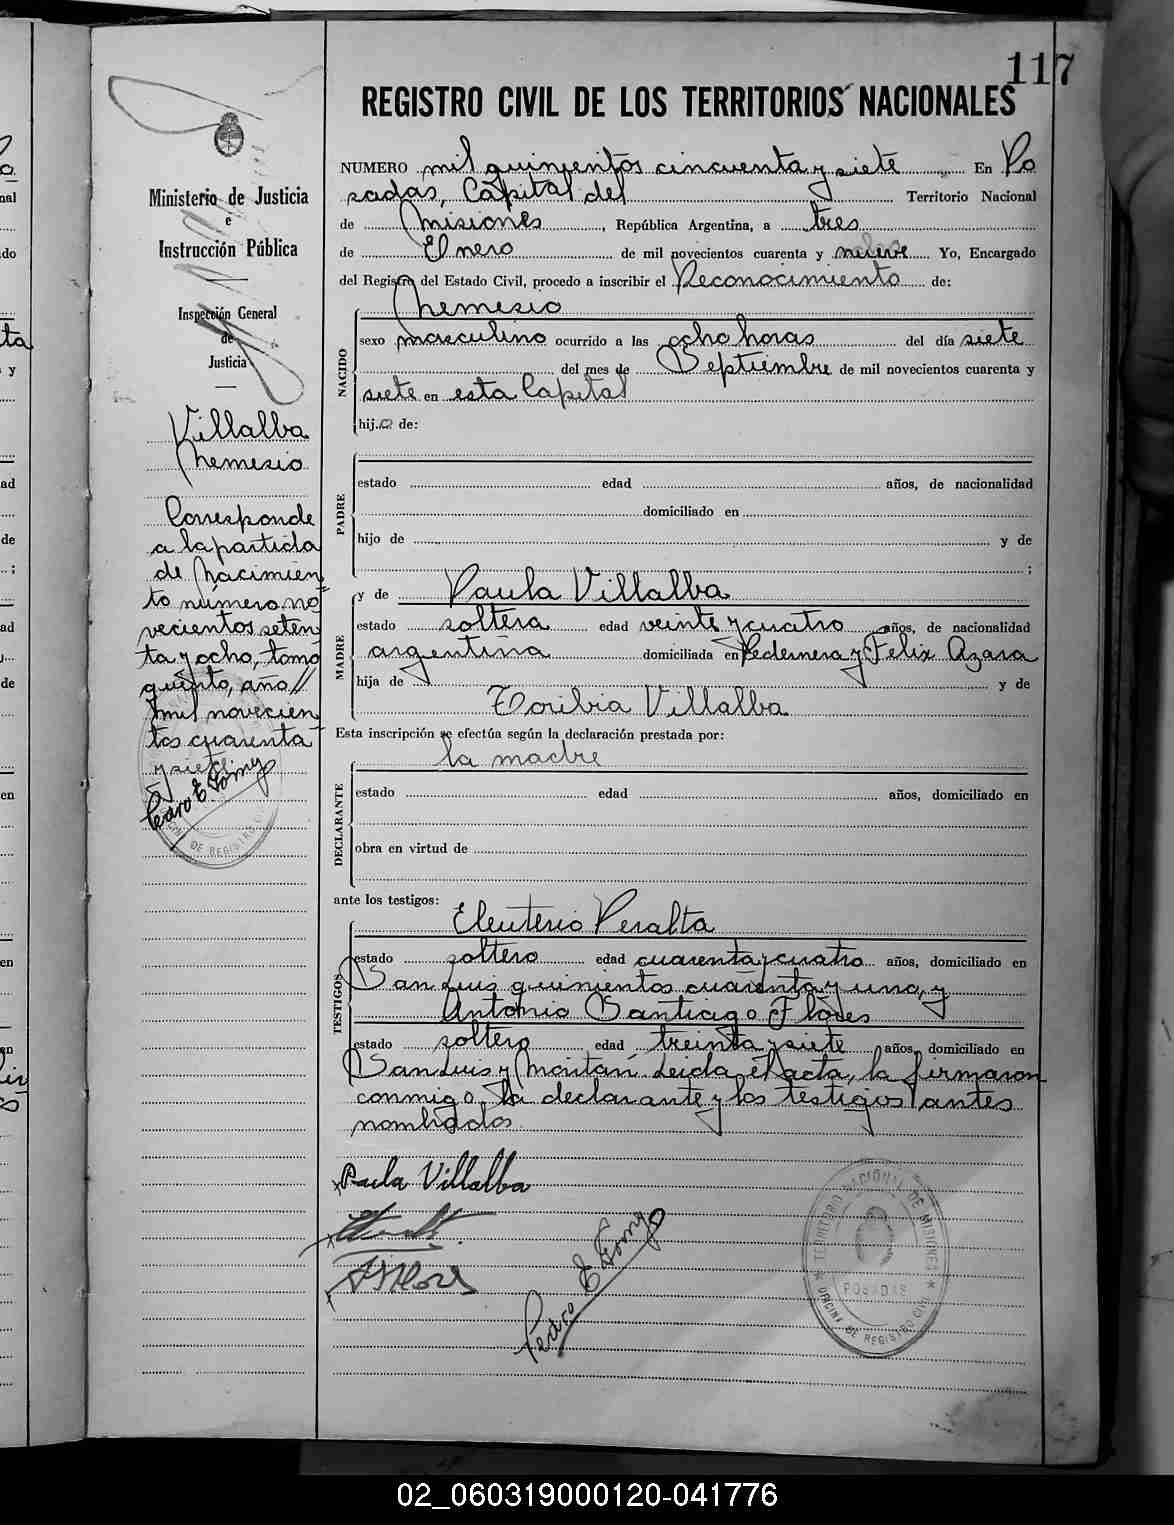 117
REGISTRO CIVIL DE LOS TERRITORIOS NACIONALES
Ministerio de Justicia
e
Instrucción Pública
Inspección General
de
Justicia
Villalba
Nemesio
Corresponde
a la partida
de Nacimien
to número no
vecientos seten
ta y ocho, tomo
quinto, año //
mil novecien
tos cuarenta
y siete
Pedro E Gomez
NUMERO mil quinientos cincuenta y siete En Po
sadas, Capital del Territorio Nacional
de Misiones, República Argentina, a tres
de Enero de mil novecientos cuarenta y nueve Yo, Encargado
del Registro del Estado Civil, procedo a inscribir el Reconocimiento de:
Nemesio
NACIDO
sexo masculino ocurrido a las ocho horas del día siete
del mes de Septiembre de mil novecientos cuarenta y
siete en esta Capital
hij.o de:
PADRE
estado edad años, de nacionalidad
domiciliado en
hijo de y de
;
MADRE
y de Paula Villalba
estado soltera edad veinte y cuatro años, de nacionalidad
argentina domiciliada en Pedernera y Felix Azara
hija de y de
Toribia Villalba
Esta inscripción se efectúa según la declaración prestada por:
la madre
DECLARANTE
estado edad años, domiciliado en
obra en virtud de
ante los testigos:
TESTIGOS
Eleuterio Peralta
estado soltero edad cuarenta y cuatro años, domiciliado en
San Luis quinientos cuarenta y uno, y
Antonio Santiago Flores
estado soltero edad treinta y siete años, domiciliado en
San Luis y Moritán. Leida el acta, la firmaron
conmigo la declarante y los testigos antes
nombrados
Paula Villalba
Pedro E Gomez
TERRITORIO NACIONAL DE MISIONES
POSADAS
OFICINA DE REGISTRO CIVIL
02_060319000120-041776